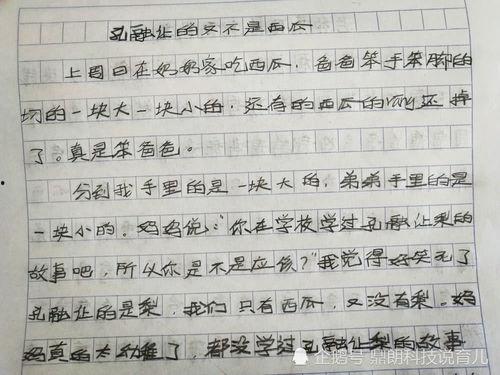 孔融让的又不是西瓜
上周日在奶奶家吃西瓜，爸爸笨手笨脚的
切的一块大一块小的，还有的西瓜的ròng还掉
了。真是笨爸爸。
分到我手里的是一块大的，弟弟手里的是
一块小的。妈妈说："你在学校学过孔融让梨的
故事吧，所以你是不是应该？"我觉得好笑死了
孔融让的是梨，我们只有西瓜，又没有梨。妈
妈真的太幼稚了，都没学过孔融让梨的故事
企鹅号 鼎朗科技说育儿